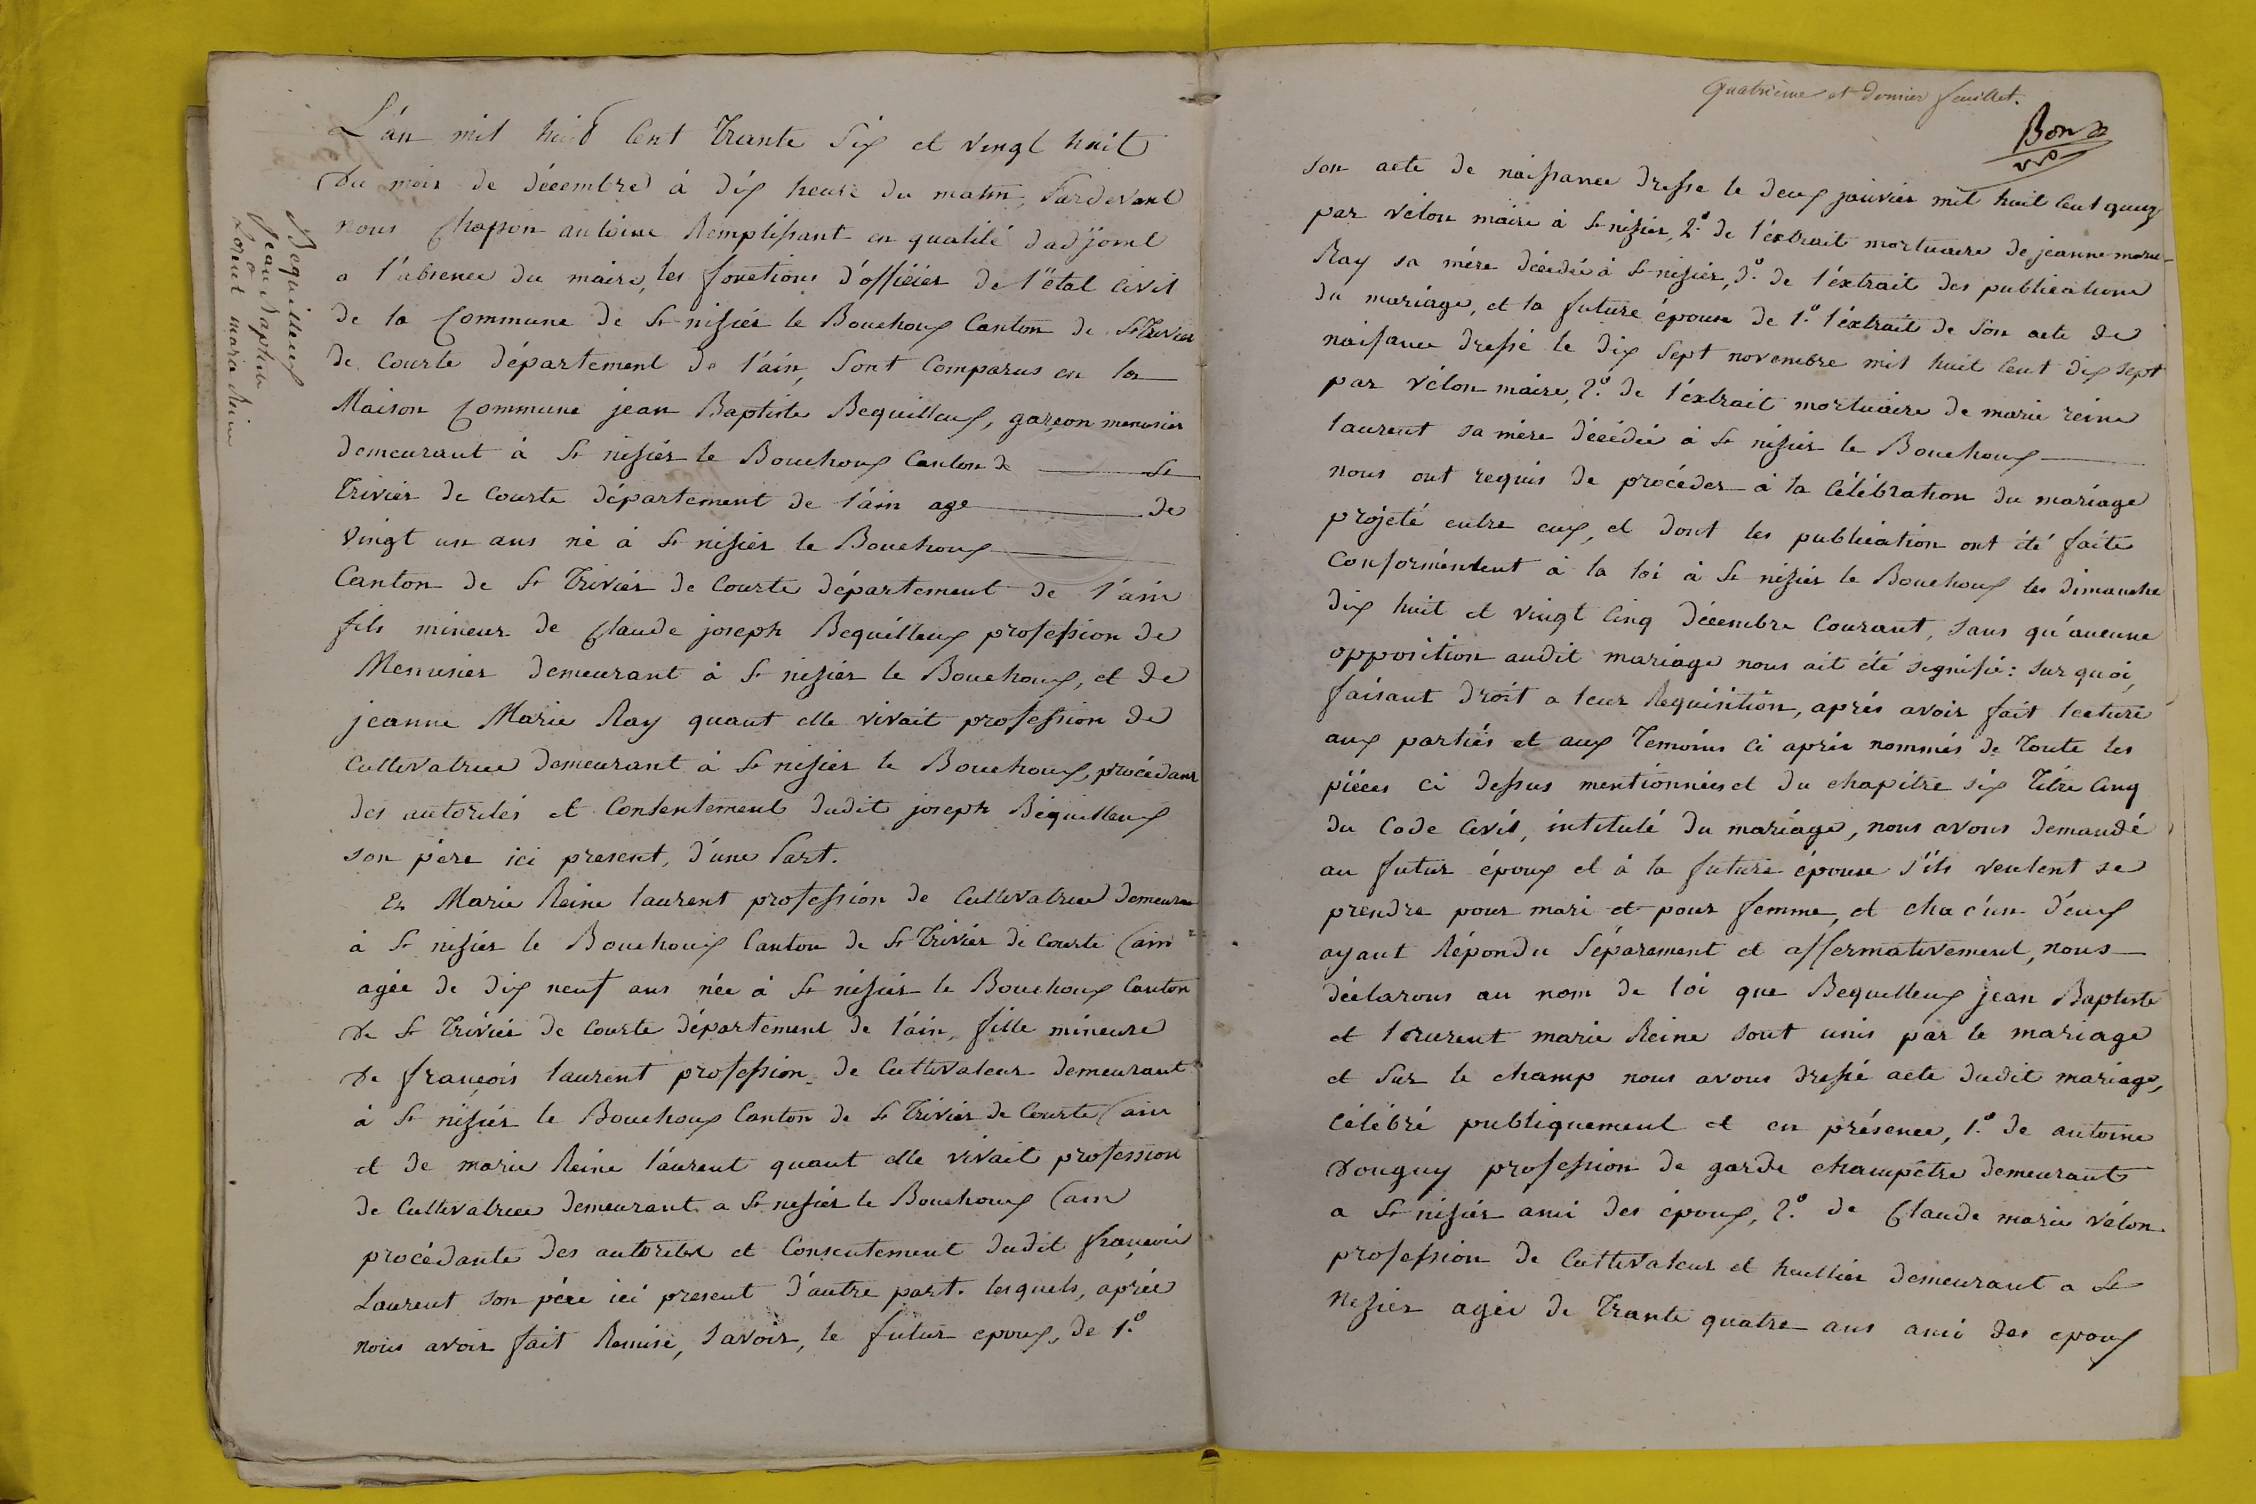 Bequilleux
jean Baptiste
&
Lorent marie Reine
L'án mil huit Cent Trante Six et vingt huit
du mois de décembre à dix heure du matin, Pardevant
nous Chapon antoine Remplissant en qualité dadjoint
a l'absence du maire, les fonctions d'officier de l'état Civil
de la Commune de St nisiér le Bouchoux Canton de St Trivier
de Courte département de l'áin, Sont Comparus en la
Maison Commune jean Baptiste Bequilleux, garçon menusier
demeurant à St nisiér le Bouchoux Canton de St
Trivier de Courte département de l'áin age de
Vingt un ans né à St nisiér le Bouchoux
Canton de St Trivier de Courte département de l'áin
fils mineur de Claude joseph Bequilleux profession de
Menusier demeurant à St nisiér le Bouchoux, et de
jeanne Marie Ray quant elle vivait profession de
Cultivatrice demeurant à St nisier le Bouchoux, procédant
des autorités et Consentement dudit joseph Béquilleux
son père ici present, d'une Part.
Et Marie Reine laurent profession de Cultivatrice demeurant
à St nisiér le Bouchoux Canton de St Triviér de Courte (ain
agée de dix neuf ans née à St nisiér le Bouchoux Canton
de St Triviér de Courte département de l'áin, fille mineure
de françois laurent profession de Cultivateur demeurant
à St nisiér le Bouchoux Canton de St Triviér de Courte (ain
et de marie Reine láurent quant elle vivait profession
de Cultivatrice demeurant a St nisiér le Bouchoux (ain
procédante des autorites et Consentement dudit françois
Laurent son pére ici present d'autre part. lesquels, aprés
nous avoir fait Remise, Savoir, le futur epoux, de 1.º
Quatrième et dernier feuillet.
Bon
son acte de naissance dresse le deux janvier mil huit Cent quinz
par vélon maire à St nisiér, 2.º de l'éxtrait mortuaire de jeanne marie
Ray sa mére décédée à St nisiér, 3.º de l'éxtrait des publications
du mariage, et la future épouse de 1.º l'éxtrait de Son acte de
naissance dressé le dix Sept novembre mil huit Cent dix sept
par Vélon maire, 2.º de l'éxtrait mortuaire de marie reine
laurent sa mére décédée à St nisiér le Bouchoux
nous ont requis de procéder à la Célébration du mariage
projeté entre eux, et dont les publication ont été faite
Conformément à la loi à St nisiér le Bouchoux les dimanche
dix huit et vingt Cinq décembre Courant, Sans qu'aucune
opposition audit mariage nous ait été signifié: Sur quoi,
faisant droit a leur Requisition, aprés avoir fait lecture
aux partiés et aux Temoins Ci aprés nommés de Toute les
piéces ci dessus mentionnés et du chapitre six Titre Cinq
du Code Civil, intitulé du mariage, nous avons demandé
au futur époux et à la future épouse s'ils veulent se
prendre pour mari et pour femme, et chac'un d'eux
ayant Répondu Séparement et affermativement, nous
déclarons au nom de loi que Bequilleux jean Baptiste
et laurent marie Reine sont unis par le mariage
et Sur le champ nous avons dressé acte dudit mariage,
Célébré publiquement et en présence, 1.º de antoine
Douguy profession de garde champêtre demeurant
a St nisiér ami des époux, 2.º de Claude marie Vélon
profession de Cultivateur et huillier demeurant a St
Nisier agée de Trante quatre ans ami des epoux